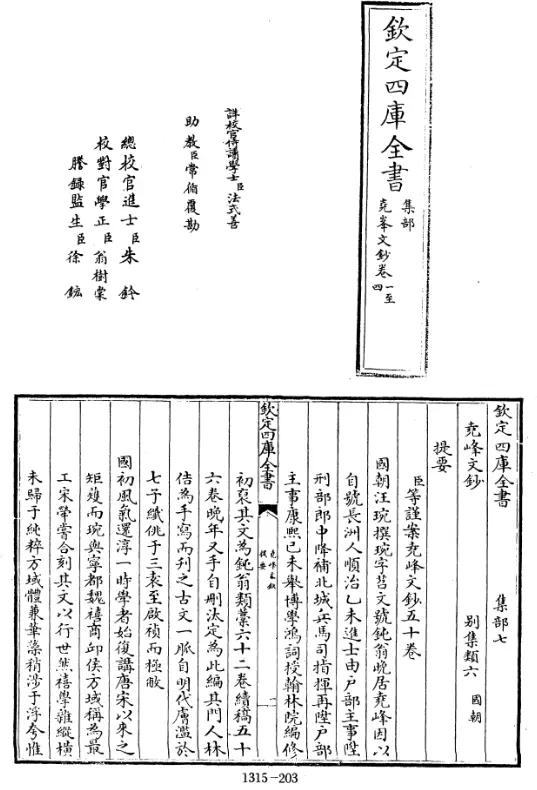 欽定四庫全書
集部
堯峯文鈔卷一至四
詳校官侍講學士臣法式善
助教臣常循覆勘
總校官進士臣朱鈐
校對官學正臣翁樹棠
謄錄監生臣徐鋐
欽定四庫全書 集部七
堯峰文鈔 別集類六 國朝
提要
臣等謹案堯峰文鈔五十卷
國朝汪琬撰琬字苕文號鈍翁晚居堯峰因以
自號長洲人順治乙未進士由户部主事陞
刑部郎中降補北城兵馬司指揮再陞户部
主事康熙己未舉博學鴻詞授翰林院編修
欽定四庫全書
堯峰文鈔
提要
一
初裒其文為鈍翁類藁六十二卷續稿五十
六卷晚年又手自刪汰定為此編其門人林
佶為手寫而刊之古文一脈自明代膚濫於
七子纖佻于三袁至啟禎而極敝
國初風氣還淳一時學者始復講唐宋以來之
矩矱而琬與寧都魏禧商邱侯方域稱為最
工宋犖嘗合刻其文以行世然禧學雜縱横
未歸于純粹方域體兼華藻稍涉于浮夸惟
1315-203